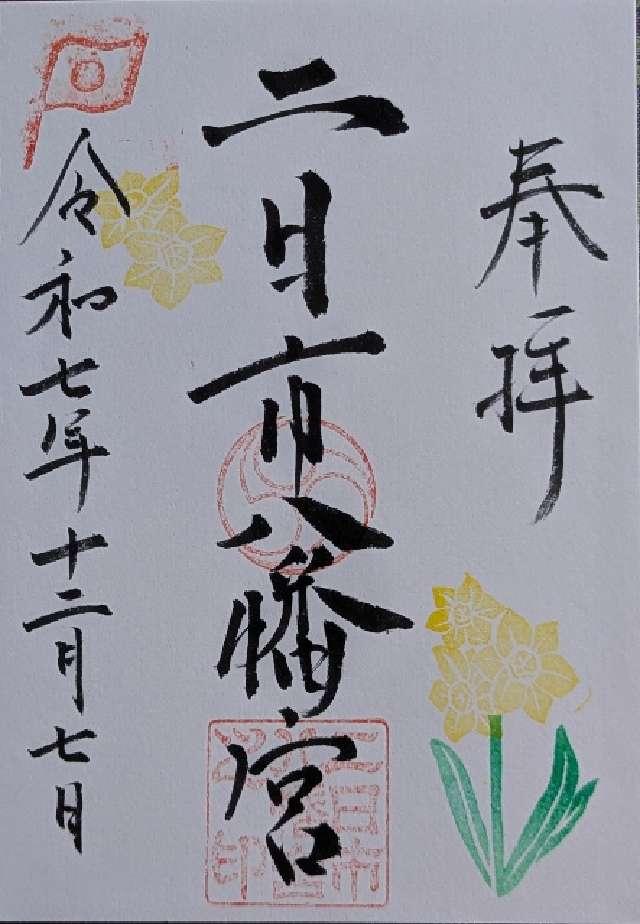 奉拝
二日市八幡宮
令和七年十二月七日